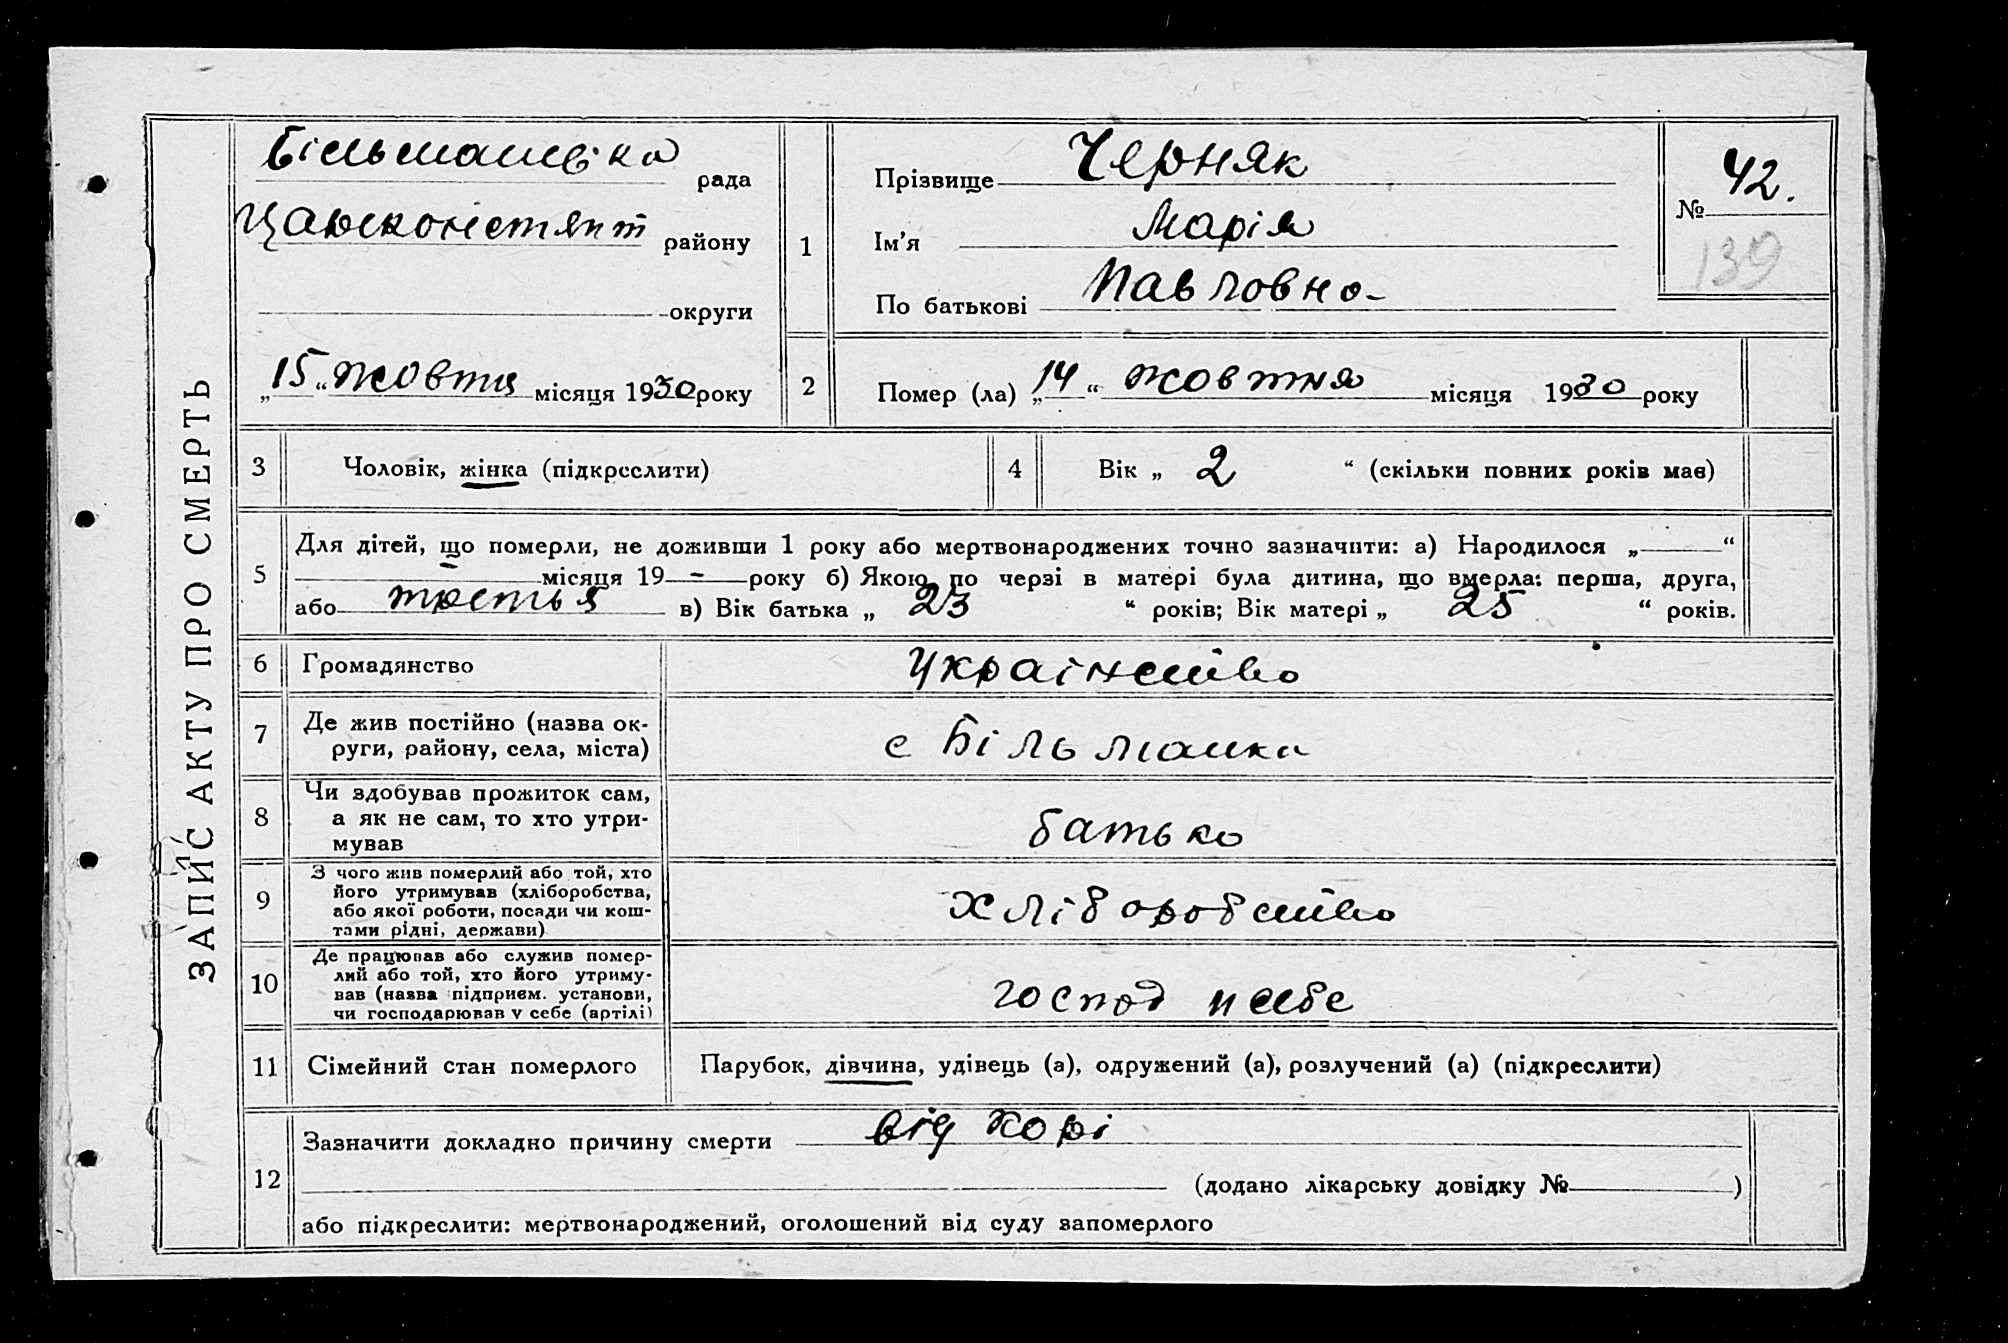 ЗАПИС АКТУ ПРО СМЕРТЬ
Більманівка рада
району
округи
„15“ жовтня місяця 1930 року
1
Прізвище Черняк
Ім’я Марія
По батькові Павловна
№ 42.
139
2
Помер (ла) „14“ жовтня місяця 1930 року
3
Чоловік, жінка (підкреслити)
4
Вік „ 2 “ (скільки повних років має)
5
Для дітей, що померли, не доживши 1 року або мертвонароджених точно зазначити: а) Народилося „ — “
місяця 19 — року б) Якою по черзі в матері була дитина, що вмерла: перша, друга,
або третья в) Вік батька „ 23 “ років; Вік матері „ 25 “ років.
6
Громадянство
Українство
7
Де жив постійно (назва ок-
руги, району, села, міста)
с Більманка
8
Чи здобував прожиток сам,
а як не сам, то хто утри-
мував
батько
9
З чого жив померлий або той, хто
його утримував (хліборобства,
або якої роботи, посади чи кош-
тами рідні, держави)
хліборобство
10
Де працював або служив помер-
лий або той, хто його утриму-
вав (назва підприєм. установи,
чи господарював у себе (артілі)
господ у себе
11
Сімейний стан померлого
Парубок, дівчина, удівець (а), одружений (а), розлучений (а) (підкреслити)
12
Зазначити докладно причину смерти від хорі
(додано лікарську довідку № )
або підкреслити: мертвонароджений, оголошений від суду запомерлого